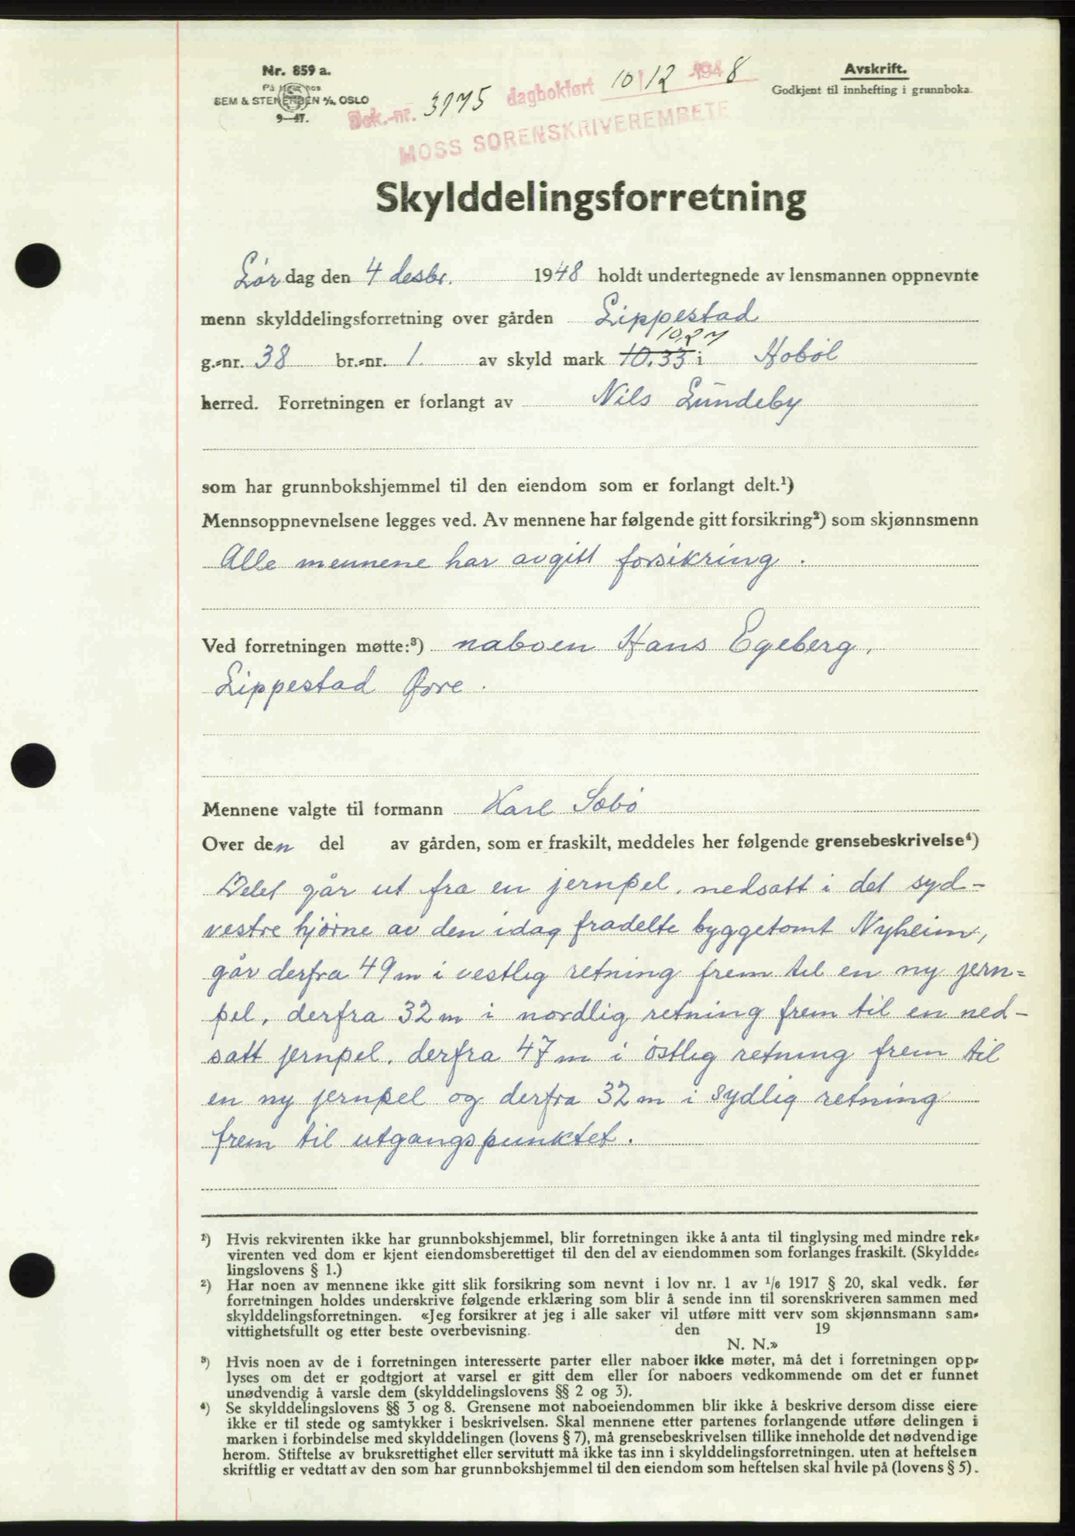 Nr. 859 a.
På lager hos
SEM & STENERSEN A/S, OSLO
9—47.
Dok.-nr. 3975 dagbokført 10/12 1948
MOSS SORENSKRIVEREMBETE
Avskrift.
Godkjent til innhefting i grunnboka.
Skylddelingsforretning
Lørdag den 4 desbr. 1948 holdt undertegnede av lensmannen oppnevnte
menn skylddelingsforretning over gården Lippestad
10,27
g.-nr. 38 br.-nr. 1 av skyld mark 10.33 i Hobøl
herred. Forretningen er forlangt av Nils Lundeby
som har grunnbokshjemmel til den eiendom som er forlangt delt.¹)
Mennsoppnevnelsene legges ved. Av mennene har følgende gitt forsikring²) som skjønnsmenn
Alle mennene har avgitt forsikring.
Ved forretningen møtte:³) naboen Hans Egeberg,
Lippestad Øvre.
Mennene valgte til formann Karl Sæbø
Over den del av gården, som er fraskilt, meddeles her følgende grensebeskrivelse⁴)
Delet går ut fra en jernpel, nedsatt i det syd-
vestre hjørne av den idag fradelte byggetomt Nyheim,
går derfra 49 m i vestlig retning frem til en ny jern=
pel, derfra 32 m i nordlig retning frem til en ned-
satt jernpel, derfra 47 m i østlig retning frem til
en ny jernpel og derfra 32 m i sydlig retning
frem til utgangspunktet.
¹) Hvis rekvirenten ikke har grunnbokshjemmel, blir forretningen ikke å anta til tinglysing med mindre rek-
virenten ved dom er kjent eiendomsberettiget til den del av eiendommen som forlanges fraskilt. (Skyldde-
lingslovens § 1.)
²) Har noen av mennene ikke gitt slik forsikring som nevnt i lov nr. 1 av 1/6 1917 § 20, skal vedk. før
forretningen holdes underskrive følgende erklæring som blir å sende inn til sorenskriveren sammen med
skylddelingsforretningen. «Jeg forsikrer at jeg i alle saker vil utføre mitt verv som skjønnsmann sam-
vittighetsfullt og etter beste overbevisning. den 19
N. N.»
³) Hvis noen av de i forretningen interesserte parter eller naboer ikke møter, må det i forretningen opp-
lyses om det er godtgjort at varsel er gitt dem eller for naboers vedkommende om det er funnet
unødvendig å varsle dem (skylddelingslovens §§ 2 og 3).
⁴) Se skylddelingslovens §§ 3 og 8. Grensene mot naboeiendommen blir ikke å beskrive dersom disse eiere
ikke er til stede og samtykker i beskrivelsen. Skal mennene etter partenes forlangende utføre delingen i
marken i forbindelse med skylddelingen (lovens § 7), må grensebeskrivelsen tillike inneholde det nødvendige
herom. Stiftelse av bruksrettighet eller servitutt må ikke tas inn i skylddelingsforretningen, uten at heftelsen
skriftlig er vedtatt av den som har grunnbokshjemmel til den eiendom som heftelsen skal hvile på (lovens § 5).